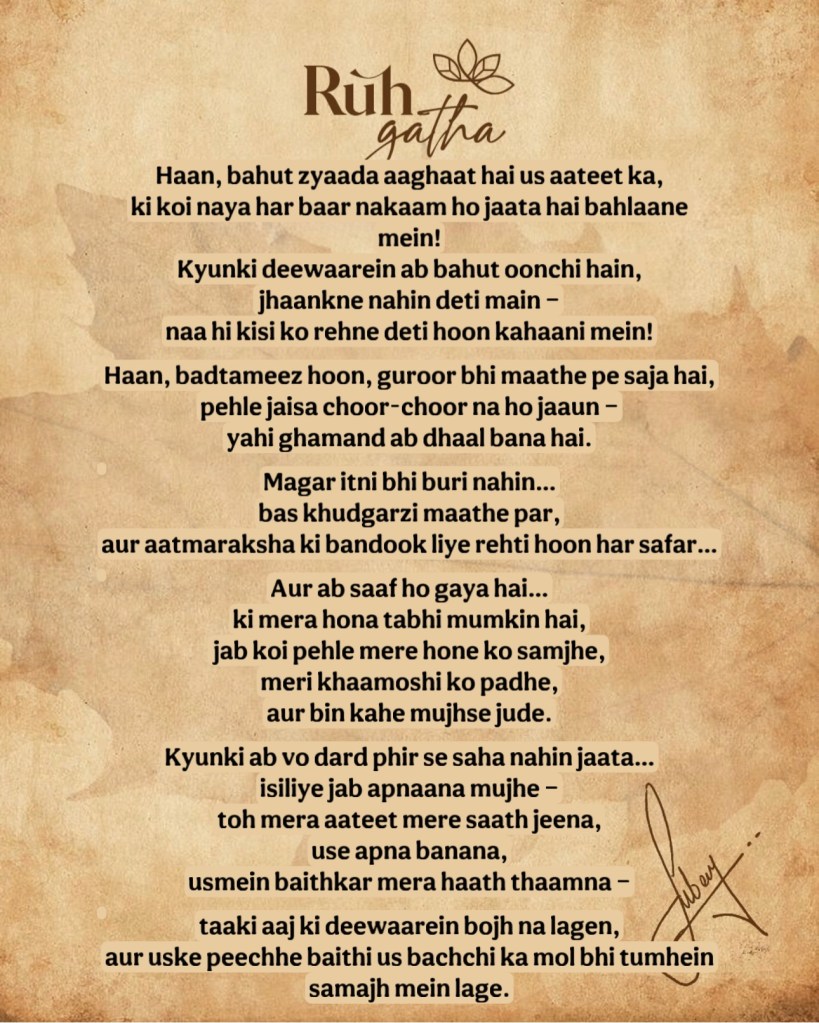 Rùh
gatha
Haan, bahut zyaada aaghaat hai us aateet ka,
ki koi naya har baar nakaam ho jaata hai bahlaane
mein!
Kyunki deewaarein ab bahut oonchi hain,
jhaankne nahin deti main –
naa hi kisi ko rehne deti hoon kahaani mein!
Haan, badtameez hoon, guroor bhi maathe pe saja hai,
pehle jaisa choor-choor na ho jaaun –
yahi ghamand ab dhaal bana hai.
Magar itni bhi buri nahin...
bas khudgarzi maathe par,
aur aatmaraksha ki bandook liye rehti hoon har safar...
Aur ab saaf ho gaya hai...
ki mera hona tabhi mumkin hai,
jab koi pehle mere hone ko samjhe,
meri khaamoshi ko padhe,
aur bin kahe mujhse jude.
Kyunki ab vo dard phir se saha nahin jaata...
isiliye jab apnaana mujhe –
toh mera aateet mere saath jeena,
use apna banana,
usmein baithkar mera haath thaamna –
taaki aaj ki deewaarein bojh na lagen,
aur uske peechhe baithi us bachchi ka mol bhi tumhein
samajh mein lage.